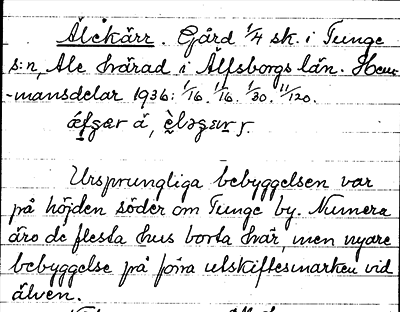 Älekärr. Gård 1/4 sk. i Tunge
s:n, Ale härad i Älfsborgs län. Hem-
-mansdelar 1936: 1/16. 11/16. 1/30. 11/120.
Ursprungliga bebyggelsen var
på höjden söder om Tunge by. Numera
äro de flesta hus borta här, men nyare
bebyggelse på förra utskiftesmarken vid
älven.